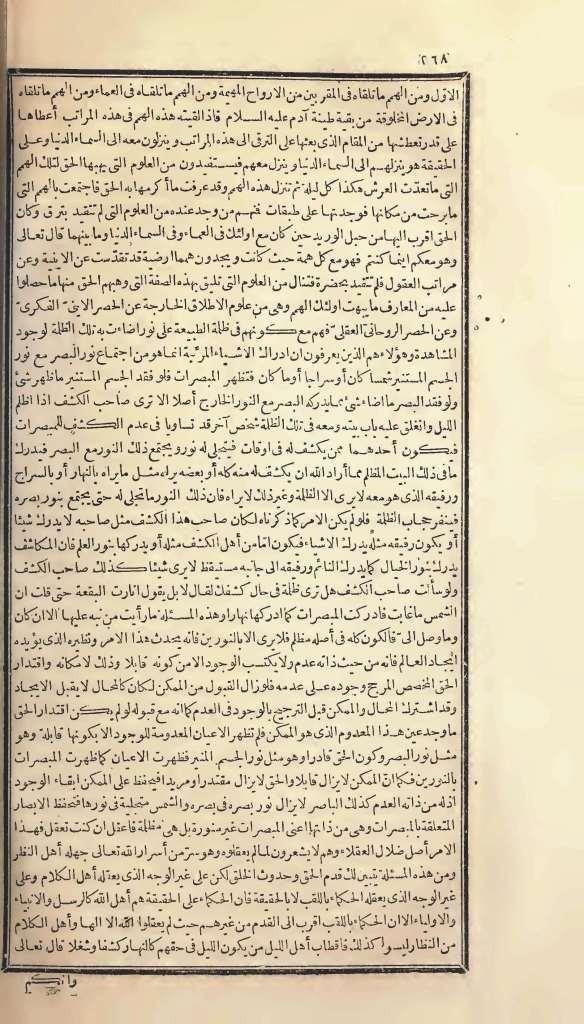 ٢٦٨
الاول ومن الهمم ما تلقاه فى المقربين من الارواح المهيمة ومن الهمم ما تلقاه فى العماء ومن الهمم ما تلقاه
فى الارض المخلوقة من بقية طينة آدم عليه السلام فاذا لقيته هذه الهمم فى هذه المراتب أعطاها
على قدر تعطشها من المقام الذى بعثها على الترقى الى هذه المراتب وينزلون معه الى السماء الدنيا وعلى
الحقيقة هو ينزلهم الى السماء الدنيا وينزل معهم فيستفيدون من العلوم التى يهبها الحق لتلك الهمم
التى ما تعدت العرش هكذا كل ليلة ثم تنزل هذه الهمم وقد عرفت ما أكرمها به الحق فاجتمعت بالهمم التى
ما برحت من مكانها فوجدتها على طبقات فمنهم من وجد عنده من العلوم التى لم تتقيد بترق وكان
الحق اقرب اليها من حبل الوريد حين كان مع اولئك فى العماء وفى السماء الدنيا وما بينهما قال تعالى
وهو معكم اينما كنتم فهو مع كل همة حيث كانت ويجدون همما ارضية قد تقدّست عن الاينية وعن
مراتب العقول فلم تتقيد بحضرة فتنال من العلوم التى تليق بهذه الصفة التى وهبهم الحق منها ما حصلوا
عليه من المعارف ما بهت اولئك الهمم وهى من علوم الاطلاق الخارجة عن الحصر الاينىّ الفكرى
وعن الحصر الروحانى العقلى فهم مع كونهم فى ظلمة الطبيعة على نور اضاءت به تلك الظلمة لوجود
المشاهدة وهؤلاء هم الذين يعرفون ان ادراك الاشياء المرئية انما هو من اجتماع نور البصر مع نور
الجسم المستنير شمسا كان أو سراجا أو ما كان فتظهر المبصرات فلو فقد الجسم المستنير ما ظهر شئ
ولو فقد البصر ما اضاء شئ مما يدركه البصر مع النور الخارج أصلا الا ترى صاحب الكشف اذا اظلم
الليل وانغلق عليه باب بيته ومعه فى تلك الظلمة شخص آخر قد تساويا فى عدم الكشف للمبصرات
فيكون أحدهما ممن يكشف له فى اوقات فيتجلى له نور ويجتمع ذلك النور مع البصر فيدرك
ما فى ذلك البيت المظلم مما أراد الله ان يكشف له منه كله أو بعضه يراه مثل ما يراه بالنهار أو بالسراج
ورفيقه الذى هو معه لا يرى الا الظلمة وغير ذلك لا يراه فان ذلك النور ما تجلى له حتى يجتمع بنور بصره
فينفر حجاب الظلمة فلو لم يكن الامر كما ذكرناه لكان صاحب هذا الكشف مثل صاحبه لا يدرك شيئا
أو يكون رفيقه مثله يدرك الاشياء فيكون اما من أهل الكشف مثله أو يدركها بنور العلم فان المكاشف
يدرك بنور الخيال كما يدرك النائم ورفيقه الى جانبه مستيقظ لا يرى شيئا كذلك صاحب الكشف
ولو سألت صاحب الكشف هل ترى ظلمة فى حال كشفك لقال لا بل يقول انارت البقعة حتى قلت ان
الشمس ما غابت فادركت المبصرات كما ادركها نهارا وهذه المسئلة ما رأيت من نبه عليها الا ان كان
وما وصل الىّ فالكون كله فى أصله مظلم فلا يرى الا بالنورين فانه يحدث هذا الامر ونظيره الذى يؤيده
ايجاد العالم فانه من حيث ذاته عدم ولا يكتسب الوجود الا من كونه قابلا وذلك لامكانه واقتدار
الحق المخصص المرجح وجوده على عدمه فلو زال القبول من الممكن لكان كالمحال لا يقبل الايجاد
وقد اشترك المحال والممكن قبل الترجيح بالوجود فى العدم كما انه مع قبوله لو لم يكن اقتدار الحق
ما وجد عين هذا المعدوم الذى هو الممكن فلم تظهر الاعيان المعدومة للوجود الا بكونها قابلة وهو
مثل نور البصر وكون الحق قادرا وهو مثل نور الجسم المنير فظهرت الاعيان كما ظهرت المبصرات
بالنورين فكما انّ الممكن لا يزال قابلا والحق لا يزال مقتدرا ومريدا فيحفظ على الممكن ابقاء الوجود
اذ له من ذاته العدم كذلك الباصر لا يزال نور بصره فى بصره والشمس متجلية فى نورها فتحفظ الابصار
المتعلقة بالمبصرات وهى من ذاتها اعنى المبصرات غير منورة بل هى مظلمة فاعقل ان كنت تعقل فهذا
الامر أصل ضلال العقلاء وهم لا يشعرون لما لم يعقلوه وهو سر من أسرار الله تعالى جهله أهل النظر
ومن هذه المسئلة يتبين لك قدم الحق وحدوث الخلق لكن على غير الوجه الذى يعقله أهل الكلام وعلى
غير الوجه الذى يعقله الحكماء باللقب لا بالحقيقة فان الحكماء على الحقيقة هم أهل الله كالرسل والانبياء
والاولياء الا ان الحكماء باللقب اقرب الى القدم من غيرهم حيث لم يعقلوا الله الا الها وأهل الكلام
من النظار ليسوا كذلك فاقطاب أهل الليل من يكون الليل فى حقهم كالنهار كشفا وشغلا قال تعالى
وانكم